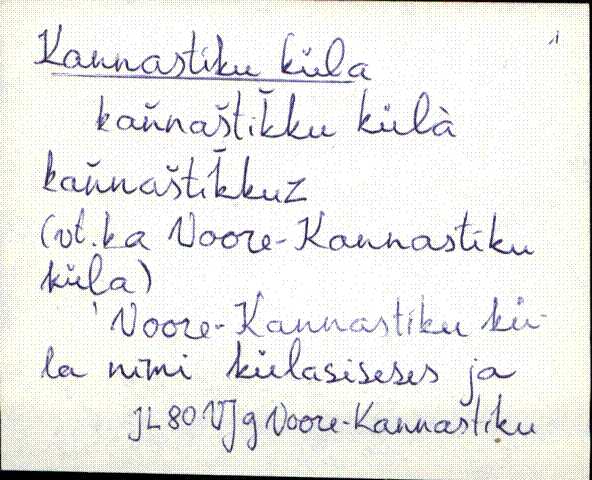 Kannastiku küla
kañnaštik̆ku külà
kañnaštik̆kuz
(vt. ka Voore-Kannastiku
küla)
Voore-Kannastiku kü-
la nimi külasiseses ja
JL 80 VJg Voore-Kannastiku